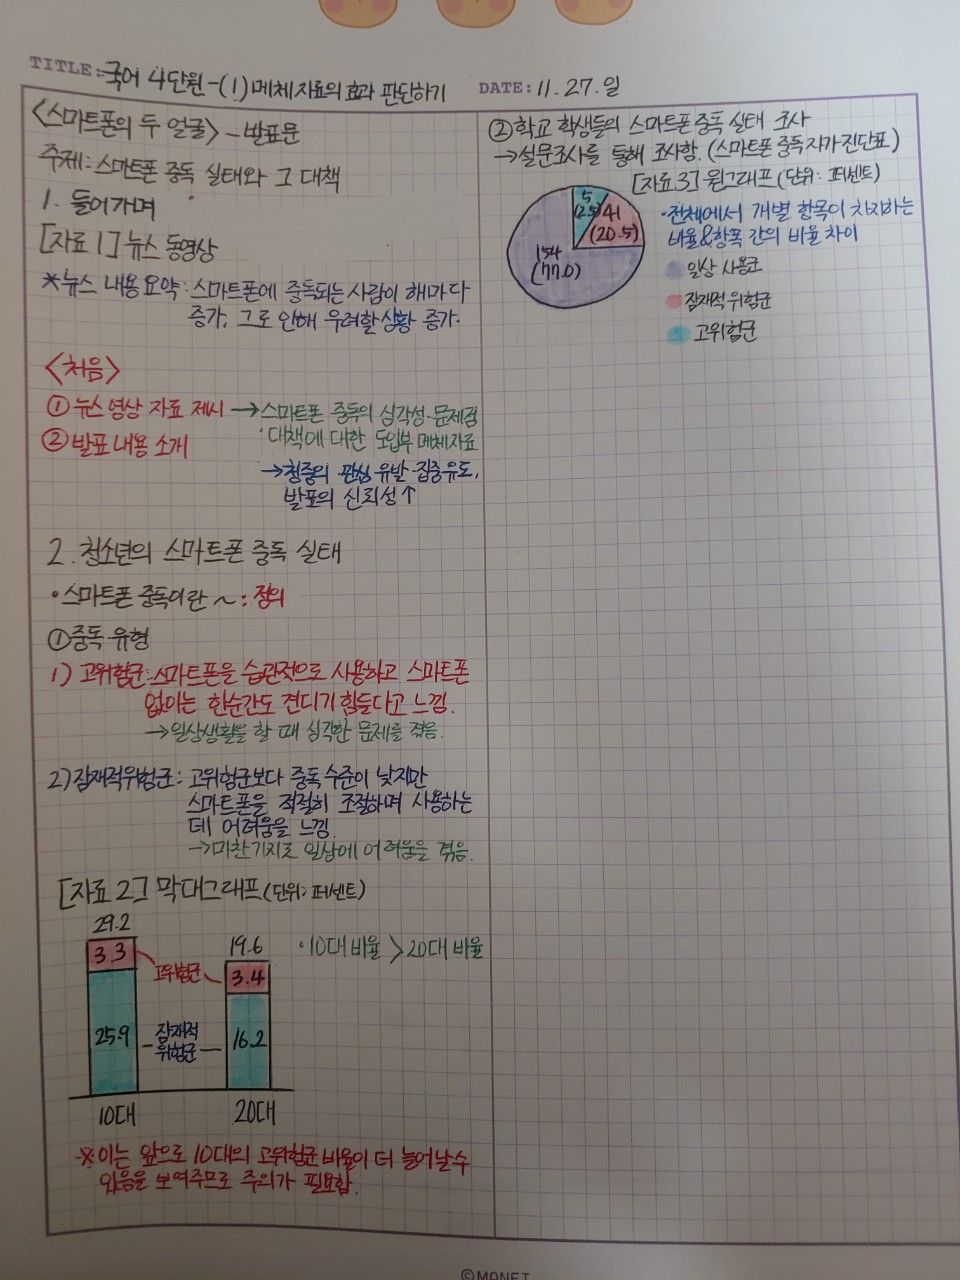 TITLE: 국어 4단원-(1)메체자료의 효과 판단하기
DATE: 11.27.일
<스마트폰의 두 얼굴> - 발표문
주제: 스마트폰 중독 실태와 그 대책
1. 들어가며
[자료1] 뉴스 동영상
*뉴스 내용요약: 스마트폰에 중독되는 사람이 해마다
증가, 그로 인해 우려할 상황 증가.
<처음>
① 뉴스 영상 자료 제시 → 스마트폰 중독의 심각성·문제점
대책에 대한 도입부 메체자료
② 발표 내용 소개
→청중의 관심 유발·집중유도,
발표의 신뢰성↑
2. 청소년의 스마트폰 중독 실태
·스마트폰 중독이란 ~: 정의
①중독 유형
1) 고위험군: 스마트폰을 습관적으로 사용하고 스마트폰
없이는 한순간도 견디기 힘들다고 느낌.
→일상생활을 할 때 심각한 문제를 겪음.
2)잠재적위험군: 고위험군보다 중독 수준이 낮지만
스마트폰을 적절히 조절하며 사용하는
데 어려움을 느낌.
→마찬가지로 일상에 어려움을 겪음.
[자료2] 막대그래프(단위: 퍼센트)
29.2
3.3
고위험군
25.9
잠재적
위험군
10대
19.6
3.4
16.2
20대
·10대 비율 > 20대 비율
※이는 앞으로 10대의 고위험군 비율이 더 늘어날 수
있음을 보여주므로 주의가 필요함.
②학교 학생들의 스마트폰 중독 실태 조사
→설문조사를 통해 조사함. (스마트폰 중독 자가진단표)
[자료3] 원그래프(단위: 퍼센트)
5
(2.5)
41
(20.5)
154
(77.0)
·전체에서 개별 항목이 차지하는
비율&항목 간의 비율 차이
일상 사용군
잠재적 위험군
고위험군
©MONET